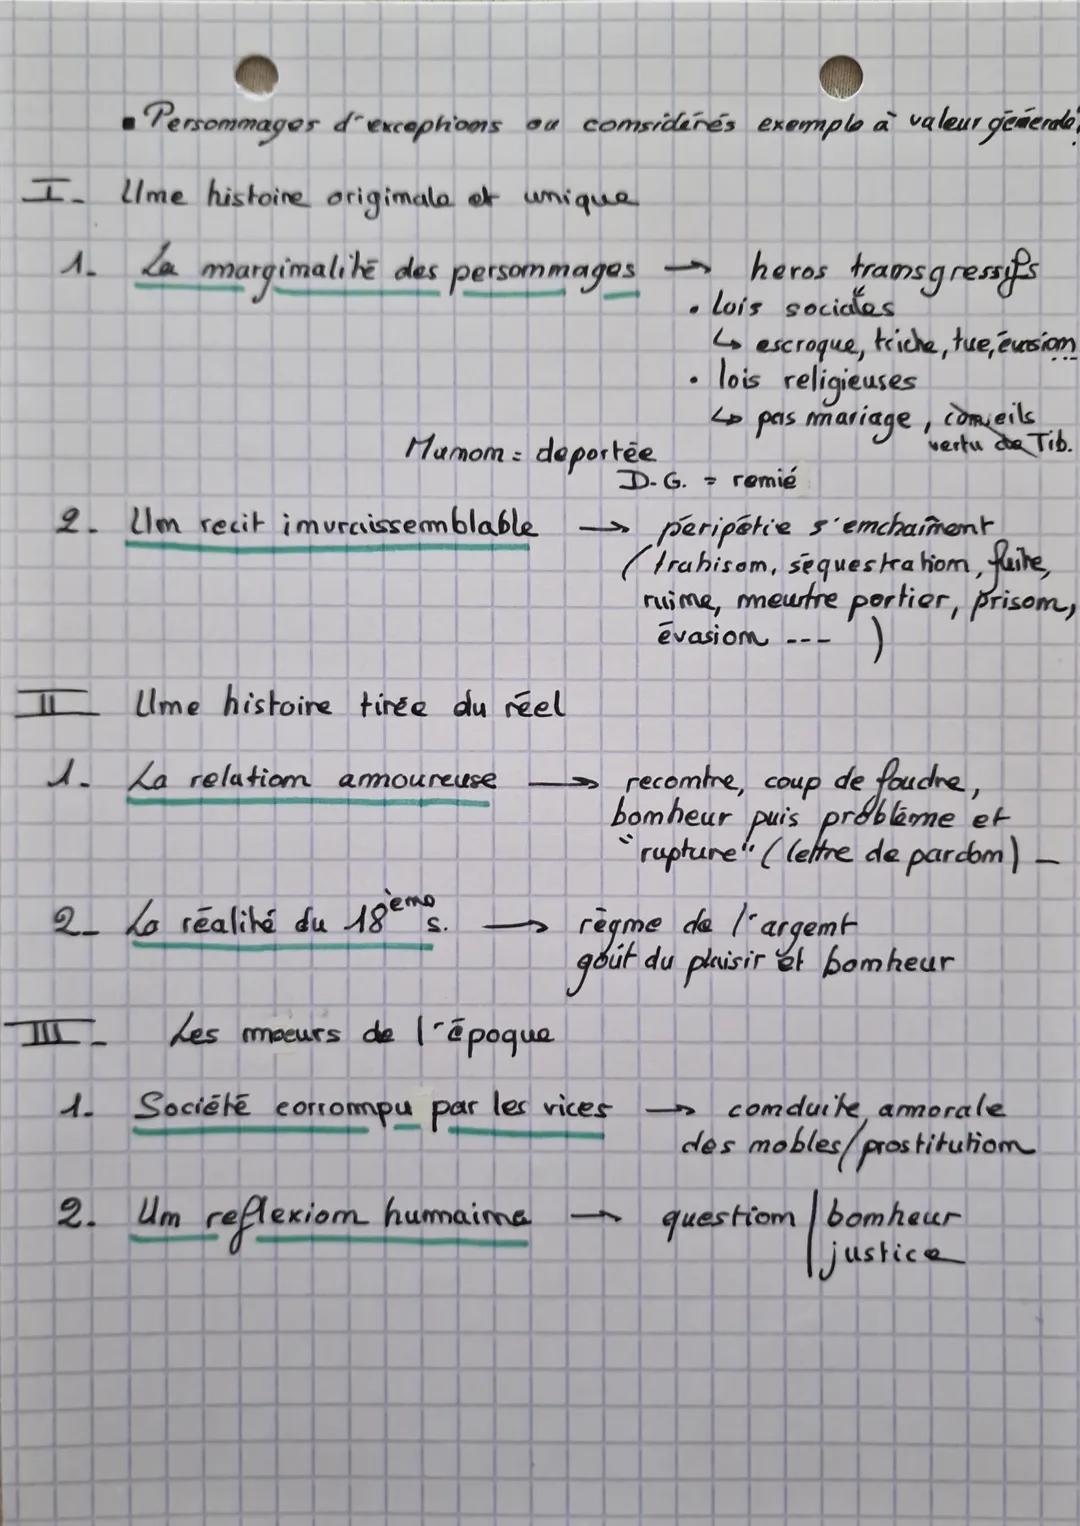 ▪ Personnages d'exceptions ou considérés exemple à valeur générale?
I- Une histoire originale et unique
1- La marginalité des personnages → heros transgressifs
• lois sociales
↳ escroque, triche, tue, évasion...
• lois religieuses
↳ pas mariage, conseils
vertu de Tib.
Manon = deportée
D.G. = renié
2- Un recit invraissemblable → péripétie s'enchaînent
(trahison, séquestration, fuite,
ruine, meurtre portier, prison,
évasion --- )
II Une histoire tirée du réel
1- La relation amoureuse → recontre, coup de foudre,
bonheur puis problème et
"rupture" (lettre de pardon) -
2- La réalité du 18ème s. → règne de l'argent
goût du plaisir et bonheur
III- Les moeurs de l'époque
1- Société corrompu par les vices → conduite amorale
des nobles/prostitution
2- Un reflexion humaine → question | bonheur
| justice